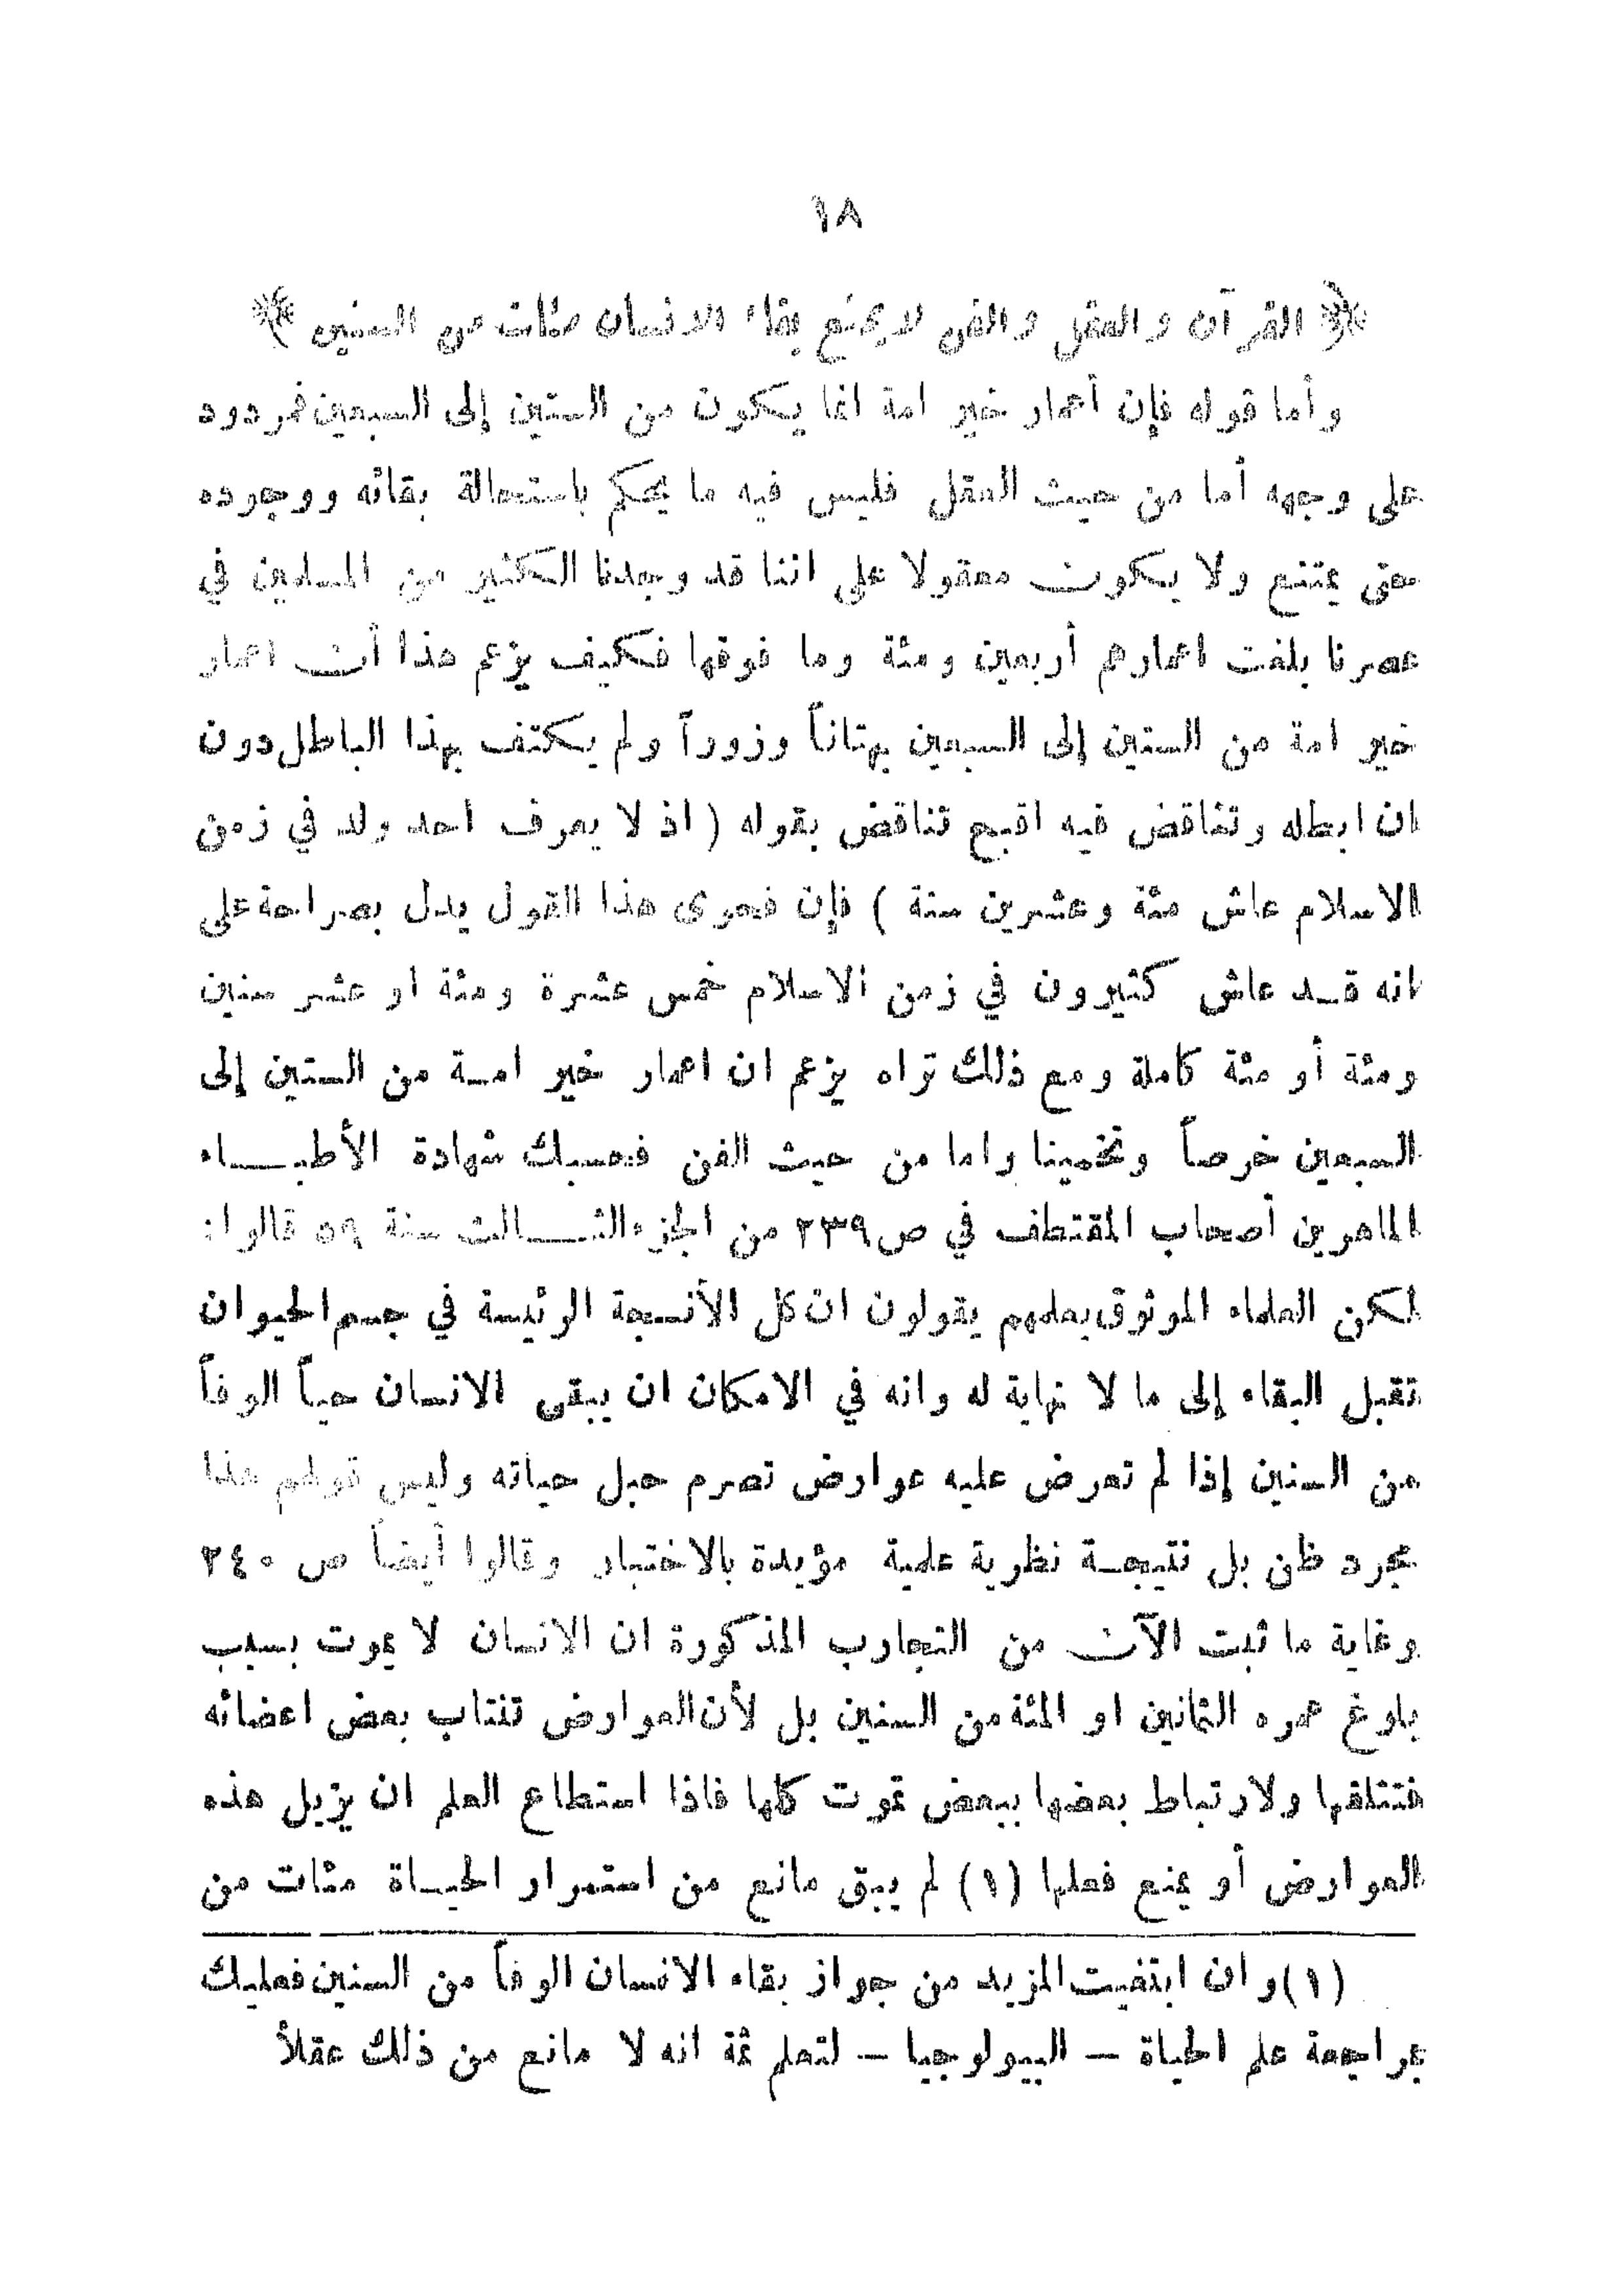 ١٨
﴿ القرآن والعقل والفن لا يمنع بقاء الانسان مئات من السنين ﴾
وأما قوله فإن أعمار خير امة انما يكون من الستين إلى السبعين فمردود
على وجهه أما من حيث العقل فليس فيه ما يحكم باستحالة بقائه ووجوده
حتى يمتنع ولا يكون معقولا على اننا قد وجدنا الكثير من المسلمين في
عصرنا بلغت اعمارهم أربعين ومئة وما فوقها فكيف يزعم هذا أن اعمار
خير امة من الستين إلى السبعين بهتاناً وزوراً ولم يكتف بهذا الباطل دون
ان ابطله وتناقض فيه اقبح تناقض بقوله ( اذ لا يعرف احد ولد في زمن
الاسلام عاش مئة وعشرين سنة ) فإن فحوى هذا القول يدل بصراحة على
انه قد عاش كثيرون في زمن الاسلام خمس عشرة ومئة او عشر سنين
ومئة أو مئة كاملة ومع ذلك تراه يزعم ان اعمار خير امة من الستين إلى
السبعين خرصاً وتخمينا واما من حيث الفن فحسبك شهادة الأطباء
الماهرين أصحاب المقتطف في ص ٢٣٩ من الجزء الثالث سنة ٥٩ قالوا :
لكن العلماء الموثوق بعلمهم يقولون ان كل الأنسجة الرئيسة في جسم الحيوان
تقبل البقاء إلى ما لا نهاية له وانه في الامكان ان يبقى الانسان حياً الوفاً
من السنين إذا لم تعرض عليه عوارض تصرم حبل حياته وليس قولهم هذا
مجرد ظن بل نتيجة نظرية علمية مؤيدة بالاختبار وقالوا أيضاً ص ٢٤٠
وغاية ما ثبت الآن من التجارب المذكورة ان الانسان لا يموت بسبب
بلوغ عمره الثمانين او المئة من السنين بل لأن العوارض تنتاب بعض اعضائه
فتتلفها ولارتباط بعضها ببعض تموت كلها فاذا استطاع العلم ان يزيل هذه
العوارض أو يمنع فعلها (١) لم يبق مانع من استمرار الحياة مئات من
(١) وان ابتغيت المزيد من جواز بقاء الانسان الوفاً من السنين فعليك
بمراجعة علم الحياة – البيولوجيا – لتعلم ثمة انه لا مانع من ذلك عقلاً